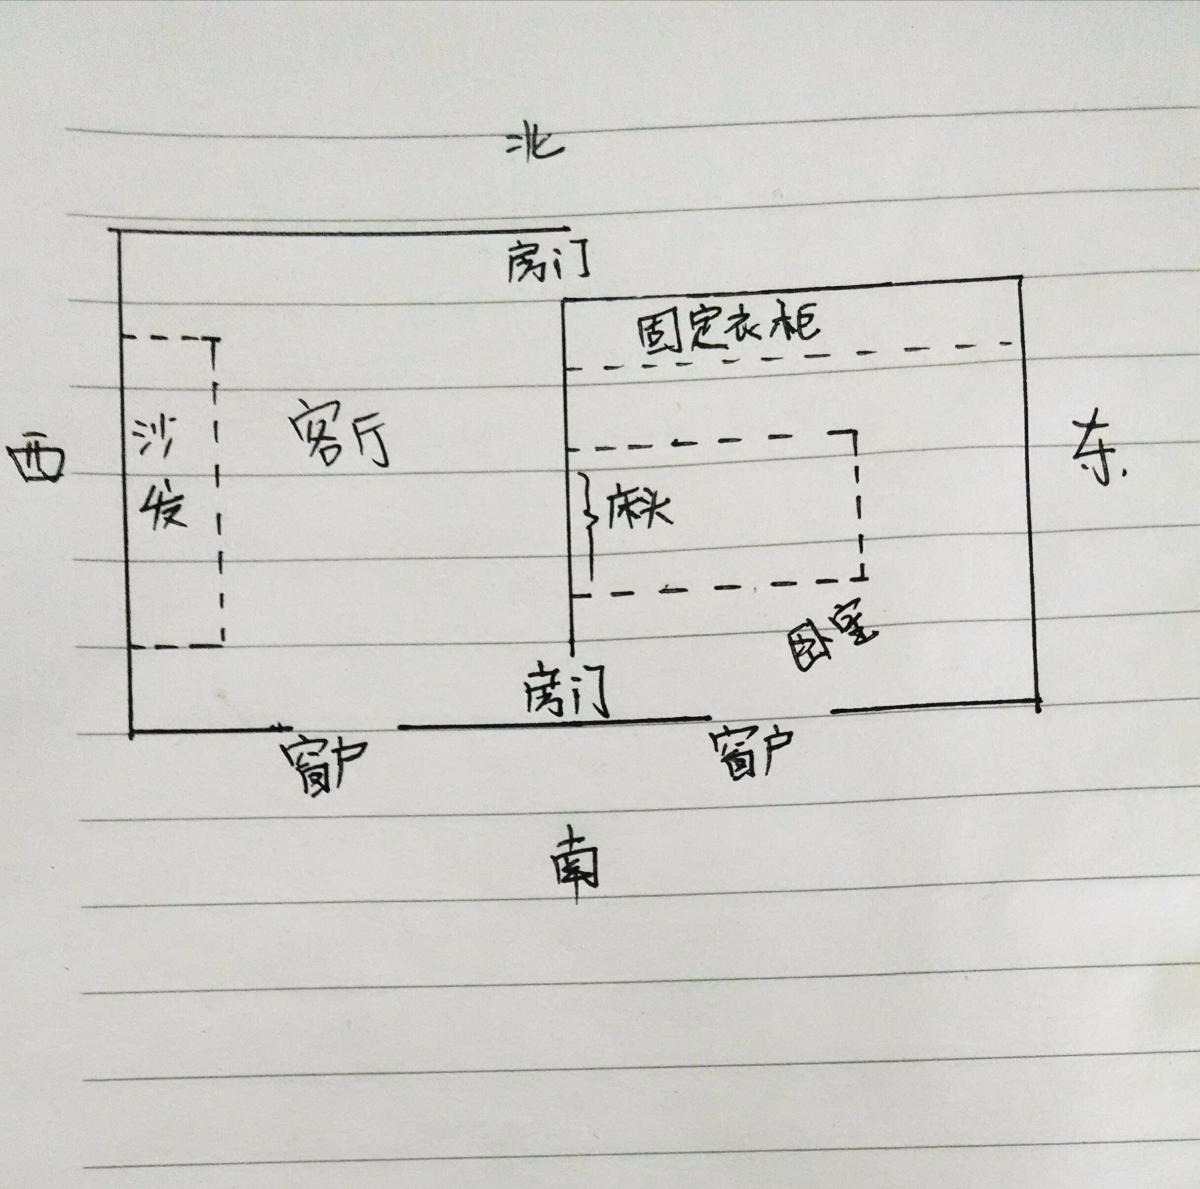 北
房门
固定衣柜
西
沙发
客厅
床头
东
卧室
房门
窗户
窗户
南